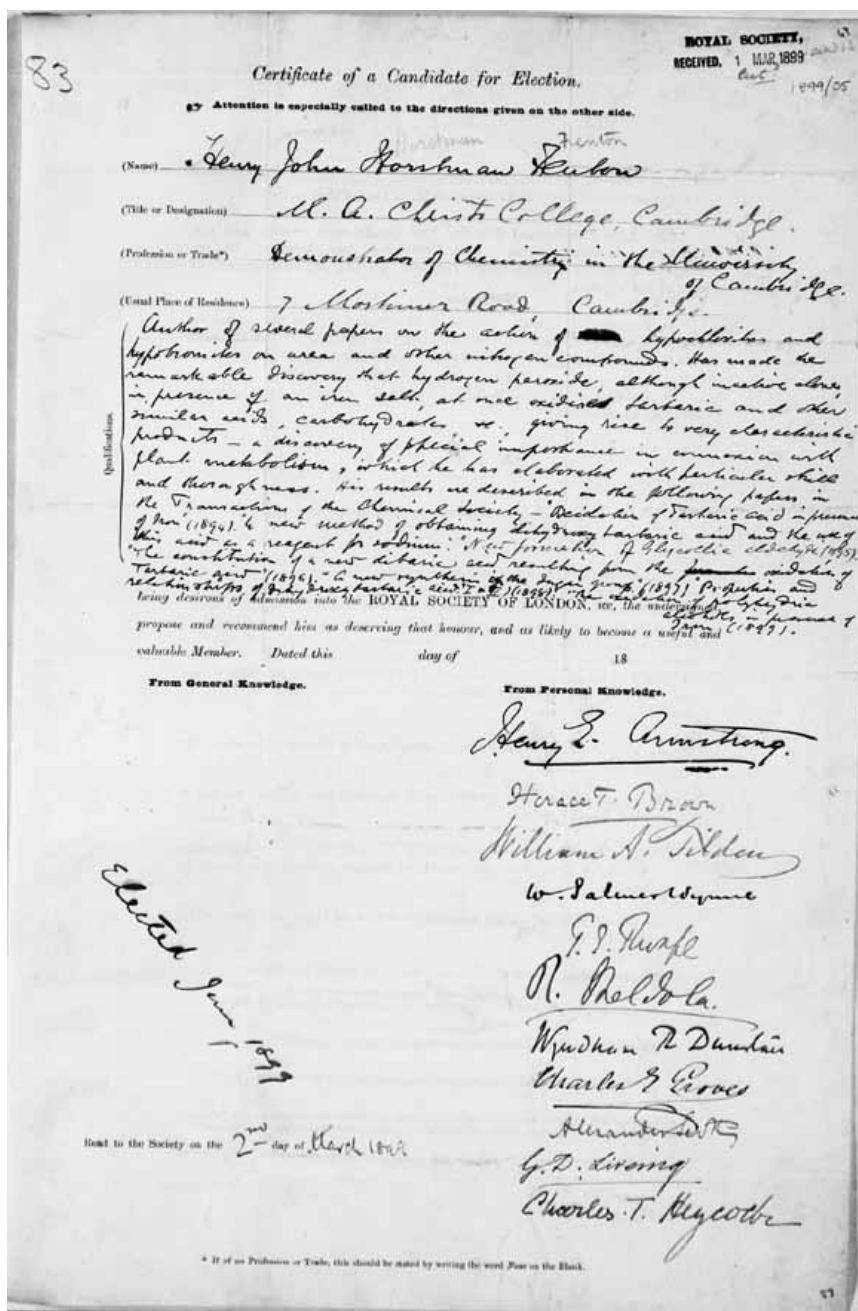 83
ROYAL SOCIETY,
RECEIVED, 1 MAR 1899
1899/05
Certificate of a Candidate for Election.
Attention is especially called to the directions given on the other side.
Horstman Fenton
(Name) Henry John Horstman Fenton
(Title or Designation) M. A. Christs College, Cambridge.
(Profession or Trade*) Demonstrator of Chemistry in the University
of Cambridge.
(Usual Place of Residence) 7 Mortimer Road, Cambridge.
Qualifications.
Author of several papers on the action of hypochlorites and
hypobromites on urea and other nitrogen compounds. Has made the
remarkable discovery that hydrogen peroxide, although inactive alone,
in presence of an iron salt, at once oxidises tartaric and other
similar acids, carbohydrates &c. giving rise to very characteristic
products – a discovery of special importance in connexion with
plant metabolism, which he has elaborated with particular skill
and thoroughness. His results are described in the following papers in
the Transactions of the Chemical Society – Oxidation of Tartaric acid in presence
of Iron (1894). "A new method of obtaining dihydroxytartaric acid and the use of
this acid as a reagent for sodium." "New formation of Glycollic aldehyde" (1895).
"The constitution of a new dibasic acid resulting from the oxidation of
Tartaric acid" (1896). "A new synthesis in the Sugar group" (1897) "Properties and
relationships of Dihydroxytartaric acid I & II" (1898) "The oxidation of Polyhydric
alcohols in presence of
Iron (1899).
being desirous of admission into the ROYAL SOCIETY OF LONDON, we, the undersigned
propose and recommend him as deserving that honour, and as likely to become a useful and
valuable Member. Dated this day of 18
From General Knowledge. From Personal Knowledge.
Henry E. Armstrong.
Horace T. Brown
William A. Tilden
W. Palmer Wynne
T. E. Thorpe
R. Meldola.
Wyndham R Dunstan
Charles E Groves
Alexander Scott
G. D. Liveing
Charles. T. Heycock
Elected June 1899
Read to the Society on the 2nd day of March 1899
* If of no Profession or Trade, this should be stated by writing the word None on the Blank.